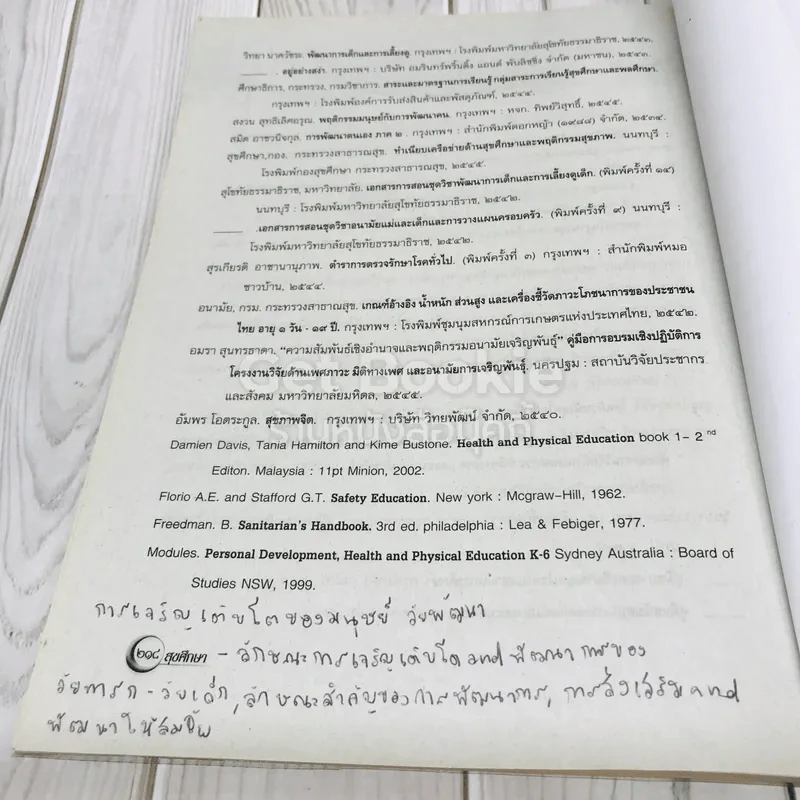 วิทยา นาควัชระ. พัฒนาการเด็กและการเลี้ยงดู. กรุงเทพฯ : โรงพิมพ์มหาวิทยาลัยสุโขทัยธรรมาธิราช, ๒๕๔๓.
______ . อยู่อย่างสง่า. กรุงเทพฯ : บริษัท อมรินทร์พริ้นติ้ง แอนด์ พับลิชชิ่ง จำกัด (มหาชน), ๒๕๔๓.
ศึกษาธิการ, กระทรวง. กรมวิชาการ. สาระและมาตรฐานการเรียนรู้ กลุ่มสาระการเรียนรู้สุขศึกษาและพลศึกษา.
กรุงเทพฯ : โรงพิมพ์องค์การรับส่งสินค้าและพัสดุภัณฑ์, ๒๕๔๔.
สงวน สุทธิเลิศอรุณ. พฤติกรรมมนุษย์กับการพัฒนาตน. กรุงเทพฯ : หจก. ทิพย์วิสุทธิ์, ๒๕๔๕.
สมิต อาชวนิจกุล. การพัฒนาตนเอง ภาค ๒ . กรุงเทพฯ : สำนักพิมพ์ดอกหญ้า (๑๙๘๘) จำกัด, ๒๕๓๔.
สุขศึกษา,กอง. กระทรวงสาธารณสุข. ทำเนียบเครือข่ายด้านสุขศึกษาและพฤติกรรมสุขภาพ. นนทบุรี :
โรงพิมพ์กองสุขศึกษา กระทรวงสาธารณสุข, ๒๕๔๕.
สุโขทัยธรรมาธิราช, มหาวิทยาลัย. เอกสารการสอนชุดวิชาพัฒนาการเด็กและการเลี้ยงดูเด็ก. (พิมพ์ครั้งที่ ๑๔)
นนทบุรี : โรงพิมพ์มหาวิทยาลัยสุโขทัยธรรมาธิราช, ๒๕๔๒.
______ .เอกสารการสอนชุดวิชาอนามัยแม่และเด็กและการวางแผนครอบครัว. (พิมพ์ครั้งที่ ๙) นนทบุรี :
โรงพิมพ์มหาวิทยาลัยสุโขทัยธรรมาธิราช, ๒๕๔๒.
สุรเกียรติ อาชานานุภาพ. ตำราการตรวจรักษาโรคทั่วไป. (พิมพ์ครั้งที่ ๓) กรุงเทพฯ : สำนักพิมพ์หมอ
ชาวบ้าน, ๒๕๔๔.
อนามัย, กรม. กระทรวงสาธาณสุข. เกณฑ์อ้างอิง น้ำหนัก ส่วนสูง และเครื่องชี้วัดภาวะโภชนาการของประชาชน
ไทย อายุ ๑ วัน - ๑๙ ปี. กรุงเทพฯ : โรงพิมพ์ชุมนุมสหกรณ์การเกษตรแห่งประเทศไทย, ๒๕๔๒.
อมรา สุนทรธาดา. "ความสัมพันธ์เชิงอำนาจและพฤติกรรมอนามัยเจริญพันธุ์" คู่มือการอบรมเชิงปฏิบัติการ
โครงงานวิจัยด้านเพศภาวะ มิติทางเพศ และอนามัยการเจริญพันธุ์. นครปฐม : สถาบันวิจัยประชากร
และสังคม มหาวิทยาลัยมหิดล, ๒๕๔๕.
อัมพร โอตระกูล. สุขภาพจิต. กรุงเทพฯ : บริษัท วิทยพัฒน์ จำกัด, ๒๕๔๐.
Damien Davis, Tania Hamilton and Kime Bustone. Health and Physical Education book 1- 2 nd
Editon. Malaysia : 11pt Minion, 2002.
Florio A.E. and Stafford G.T. Safety Education. New york : Mcgraw-Hill, 1962.
Freedman. B. Sanitarian's Handbook. 3rd ed. philadelphia : Lea & Febiger, 1977.
Modules. Personal Development, Health and Physical Education K-6 Sydney Australia : Board of
Studies NSW, 1999.
การเจริญเติบโตของมนุษย์ วัยพัฒนา
๒๑๘ สุขศึกษา - ลักษณะการเจริญเติบโต and พัฒนาการของ
วัยทารก - วัยเด็ก, ลักษณะสำคัญของการพัฒนาการ, การส่งเสริม and
พัฒนาให้สมวัย
Get Bookie